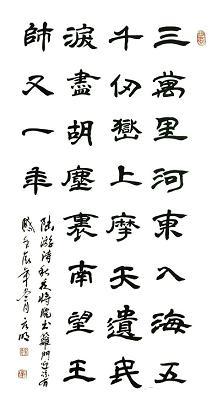 三萬里河東入海五
千仞嶽上摩天遺民
淚盡胡塵裏南望王
師又一年
陸游詩秋夜將曉出籬門迎涼有
感壬辰年